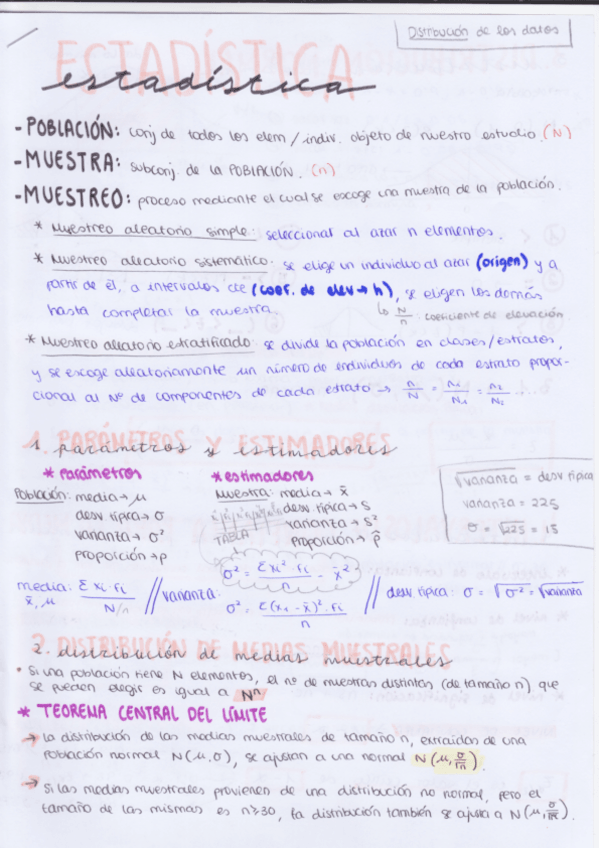 Distribución de los datos
ESTADÍSTICA
estadística
- POBLACIÓN: conj de todos los elem / indiv. objeto de nuestro estudio. (N)
- MUESTRA: subconj. de la POBLACIÓN. (n)
- MUESTREO: proceso mediante el cual se escoge una muestra de la población.
* Muestreo aleatorio simple: seleccional al azar n elementos.
* Muestreo aleatorio sistemático: se elige un individuo al azar (origen) y a
partir de él, a intervalos cte (coef. de elev → h), se eligen los demás
hasta completar la muestra. ↳ N/n : coeficiente de elevación.
* Muestreo aleatorio estratificado: se divide la población en clases/estratos,
y se escoge aleatoriamente un número de individuos de cada estrato propor-
cional al Nº de componentes de cada estrato → n/N = n₁/N₁ = n₂/N₂
1. PARÁMETROS Y ESTIMADORES
1. parámetros y estimadores
* parámetros * estimadores
Población: media → μ
desv típica → σ
varianza → σ²
proporción → p
Muestra: media → x̄
desv típica → S
varianza → S²
proporción → p̂
TABLA
√varianza = desv típica
varianza = 225
σ = √225 = 15
σ² = Σxi²·fi/n - x̄²
media: x̄, μ Σxi·fi / N/n // varianza: σ² = Σ(xi - x̄)²·fi/n // desv típica: σ = √σ² = √varianza
2. DISTRIBUCIÓN DE MEDIAS MUESTRALES
2. distribución de medias muestrales
• Si una población tiene N elementos, el nº de muestras distintas (de tamaño n) que
se pueden elegir es igual a Nⁿ
* TEOREMA CENTRAL DEL LÍMITE
→ La distribución de las medias muestrales de tamaño n, extraídas de una
población normal N(μ,σ), se ajustan a una normal N(μ, σ/√n).
→ Si las medias muestrales provienen de una distribución no normal, pero el
tamaño de las mismas es n≥30, la distribución también se ajusta a N(μ, σ/√n).